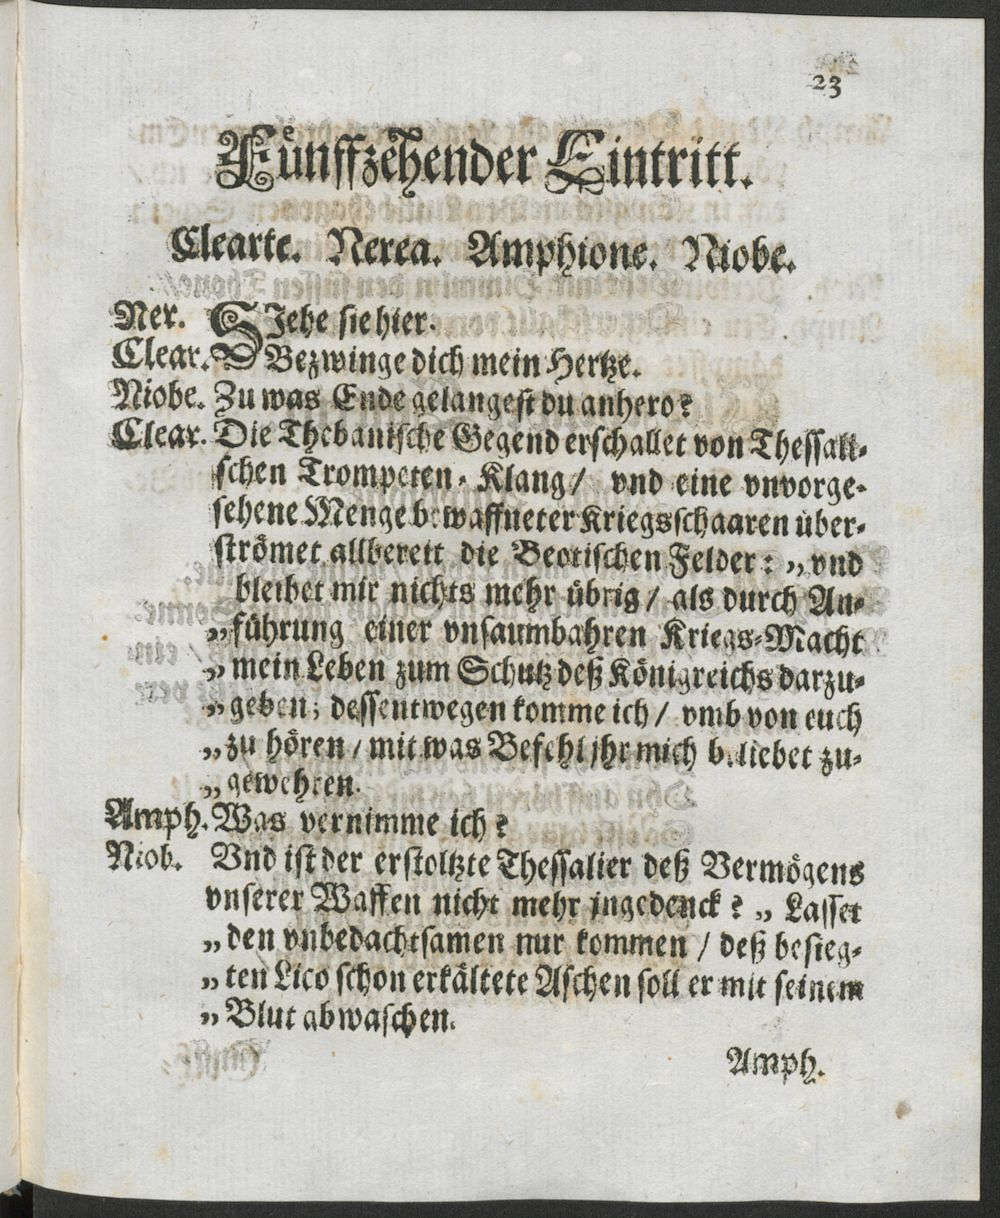 23
Fünffzehender Eintritt.
Clearte. Nerea. Amphione. Niobe.
Ner. SJehe sie hier.
Clear. Bezwinge dich mein Hertze.
Niobe. Zu was Ende gelangest du anhero?
Clear. Die Thebanische Gegend erschallet von Thessali-
schen Trompeten-Klang / vnd eine vnvorge-
sehene Menge bewaffneter Kriegsschaaren über-
strömet allbereit die Beotischen Felder: „ vnd
bleibet mir nichts mehr übrig / als durch An-
„ führung einer vnsaumbahren Kriegs-Macht
„ mein Leben zum Schutz deß Königreichs darzu-
„ geben; dessentwegen komme ich / vmb von euch
„ zu hören / mit was Befehl jhr mich beliebet zu-
„ gewehren.
Amph. Was vernimme ich?
Niob. Vnd ist der erstoltzte Thessalier deß Vermögens
vnserer Waffen nicht mehr jngedenck? „ Lasset
„ den vnbedachtsamen nur kommen / deß besieg-
„ ten Lico schon erkältete Aschen soll er mit seinem
„ Blut abwaschen.
Amph.